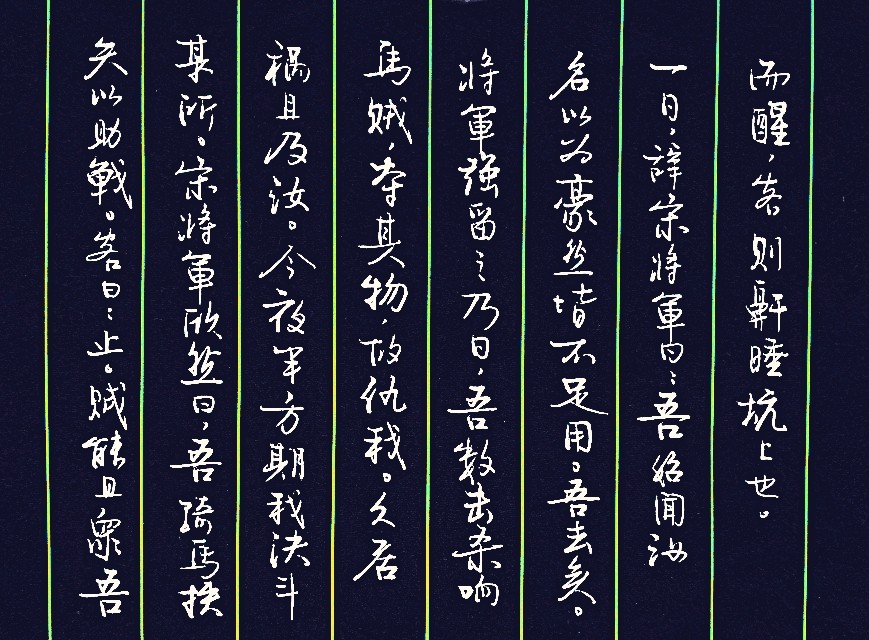 而醒，客则鼾睡坑上也。
一日，辞宋将軍曰：吾始聞汝
名以为豪然皆不足用。吾去矣。
将軍强留之乃曰，吾数击杀响
馬贼，夺其物，故仇我。久居
禍且及汝。今夜半方期我決斗
某所。宋将軍欣然曰，吾骑馬挟
矢以助戰。客曰：止。贼能且眾吾